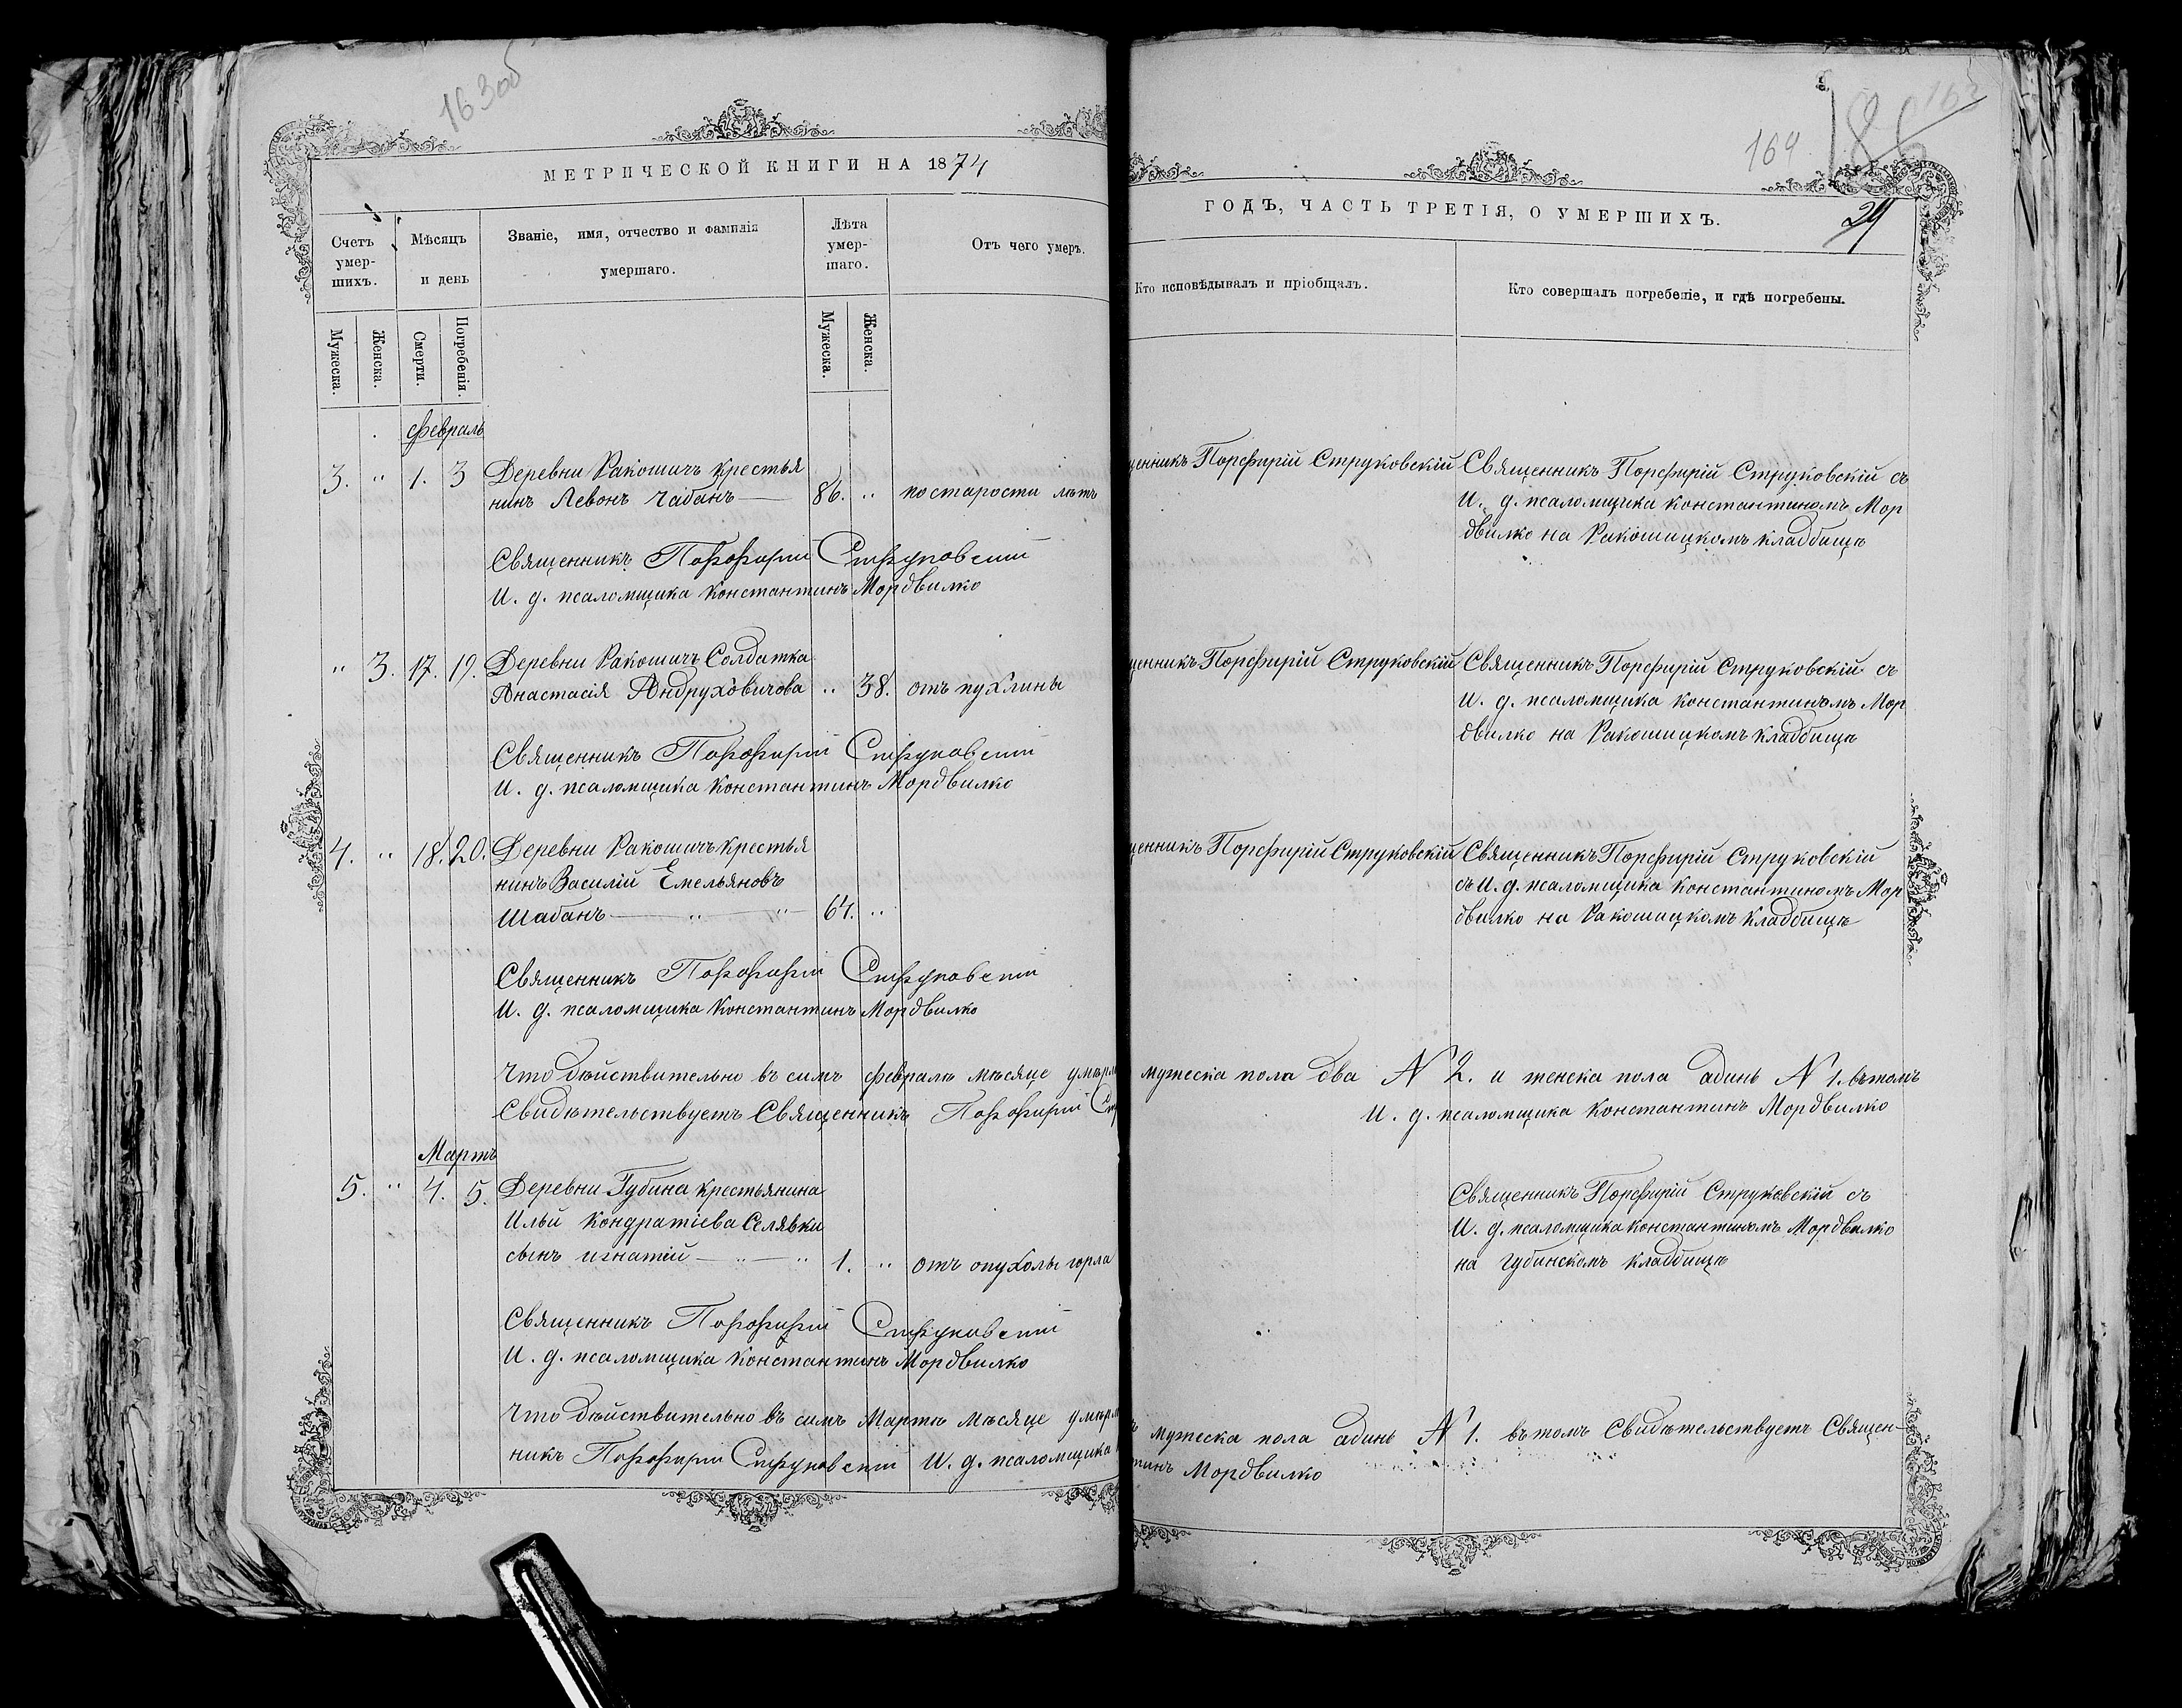 163об
МЕТРИЧЕСКОЙ КНИГИ НА 1874
Счетъ умер-шихъ.
Мѣсяцъ и день
Званіе, имя, отчество и фамилія умершаго.
Лѣта умер-шаго.
Отъ чего умеръ.
Мужеска.
Женска.
Смерти.
Погребенія.
Мужеска.
Женска.
февраль
3. " 1. 3 Деревни Ракошичъ крестья
нинъ Левонъ Чабанъ — 86. " по старости лѣтъ
Священникъ Порфирій Струковскій
И. д. псаломщика Константинъ Мордвилко
" 3. 17. 19. Деревни Ракошичъ Солдатка
Анастасія Андруховичова " 38. отъ пухлины
Священникъ Порфирій Струковскій
И. д. псаломщика Константинъ Мордвилко
4. " 18. 20. Деревни Ракошичъ крестья
нинъ Василій Емельяновъ
Шабанъ — " — " — 64. "
Священникъ Порфирій Струковскій
И. д. псаломщика Константинъ Мордвилко
Что дѣйствительно въ симъ февралѣ мѣсяце умѣрл
Свидѣтельствуетъ Священникъ Порфирій Ст
Мартъ
5. " 4. 5. Деревни Губина крестьянина
Ильи Кондратіева Селявки
сынъ игнатій — " — " 1. " отъ опухолы горла
Священникъ Порфирій Струковскій
И. д. псаломщика Константинъ Мордвилко
Что дѣйствительно въ симъ Мартѣ мѣсяце умѣрл
никъ Порфирій Струковскій И. д. псаломщика
164
24
ГОДЪ, ЧАСТЬ ТРЕТІЯ, О УМЕРШИХЪ.
Кто исповѣдывалъ и пріобщалъ.
Кто совершалъ погребеніе, и гдѣ погребены.
щенникъ Порфирій Струковскій Священникъ Порфирій Струковскій съ
И. д. псаломщика Константиномъ Мор
двилко на Ракошицкомъ кладбищѣ
щенникъ Порфирій Струковскій Священникъ Порфирій Струковскій съ
И. д. псаломщика Константиномъ Мор
двилко на Ракошицкомъ кладбищѣ
щенникъ Порфирій Струковскій Священникъ Порфирій Струковскій
съ И. д. псаломщика Константиномъ Мор
двилко на Ракошицкомъ кладбищѣ
мужеска пола два № 2. и женска пола адинъ № 1. вътомъ
И. д. псаломщика Константинъ Мордвилко
Священникъ Порфирій Струковскій съ
И. д. псаломщика Константиномъ Мордвилко
на Губинскомъ кладбищѣ
ъ мужеска пола адинъ № 1. вътомъ Свидѣтельствуетъ Священ-
тинъ Мордвилко